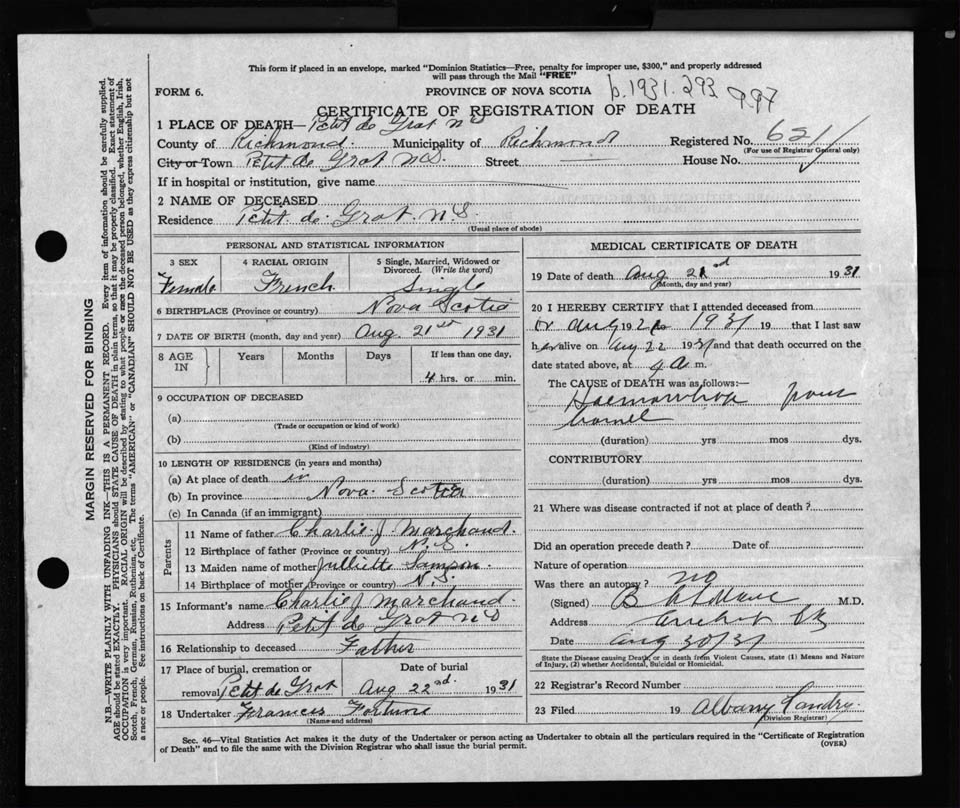 This form if placed in an envelope, marked "Dominion Statistics—Free, penalty for improper use, $300," and properly addressed
will pass through the Mail "FREE"
FORM 6.
PROVINCE OF NOVA SCOTIA
b.1931.293
997
CERTIFICATE OF REGISTRATION OF DEATH
1 PLACE OF DEATH— Petit de Grat N S
County of Richmond Municipality of Richmond Registered No. 621
(For use of Registrar General only)
City or Town Petit de Grat N.S. Street House No.
If in hospital or institution, give name
2 NAME OF DECEASED
Residence Petit de Grat N.S.
(Usual place of abode)
PERSONAL AND STATISTICAL INFORMATION
3 SEX
Female
4 RACIAL ORIGIN
French
5 Single, Married, Widowed or
Divorced. (Write the word)
Single
6 BIRTHPLACE (Province or country) Nova Scotia
7 DATE OF BIRTH (month, day and year) Aug. 21st 1931
8 AGE
IN
Years
Months
Days
If less than one day,
4 hrs. or min.
9 OCCUPATION OF DECEASED
(a)
(Trade or occupation or kind of work)
(b)
(Kind of industry)
10 LENGTH OF RESIDENCE (in years and months)
(a) At place of death in
(b) In province Nova Scotia
(c) In Canada (if an immigrant)
Parents
11 Name of father Charlie J Marchand.
12 Birthplace of father (Province or country) N.S.
13 Maiden name of mother Julliette Sampson.
14 Birthplace of mother (Province or country) N.S.
15 Informant's name Charlie J Marchand.
Address Petit de Grat N S
16 Relationship to deceased Father
17 Place of burial, cremation or
removal Petit de Grat
Date of burial
Aug 22nd. 1931
18 Undertaker Francis Fortune
(Name and address)
MEDICAL CERTIFICATE OF DEATH
19 Date of death Aug 21nd 1931
(Month, day and year)
20 I HEREBY CERTIFY that I attended deceased from
Aug 192 to 1931 19 that I last saw
her alive on Aug 22 1931 and that death occurred on the
date stated above, at 9 a m.
The CAUSE of DEATH was as follows:—
Haemorrhage from
(duration) yrs mos dys.
CONTRIBUTORY
(duration) yrs mos dys.
21 Where was disease contracted if not at place of death?
Did an operation precede death? Date of
Nature of operation
Was there an autopsy? no
(Signed) B M.D.
Address Arichat
Date Aug 30/31
State the Disease causing Death, or in death from Violent Causes, state (1) Means and Nature
of Injury, (2) whether Accidental, Suicidal or Homicidal.
22 Registrar's Record Number
23 Filed 19 Albany Landry.
(Division Registrar)
Sec. 46—Vital Statistics Act makes it the duty of the Undertaker or person acting as Undertaker to obtain all the particulars required in the "Certificate of Registration
of Death" and to file the same with the Division Registrar who shall issue the burial permit.
(OVER)
MARGIN RESERVED FOR BINDING
N.B.—WRITE PLAINLY WITH UNFADING INK—THIS IS A PERMANENT RECORD. Every item of information should be carefully supplied.
AGE should be stated EXACTLY. PHYSICIANS should STATE CAUSE OF DEATH in plain terms, so that it may be properly classified. Exact statement of
OCCUPATION is very important. RACIAL ORIGIN will be described by stating to what people or race the deceased person belonged, whether English, Irish,
Scotch, French, German, Russian, Ruthenian, etc. The terms "AMERICAN" or "CANADIAN" SHOULD NOT BE USED as they express citizenship but not
a race or people. See instructions on back of Certificate.